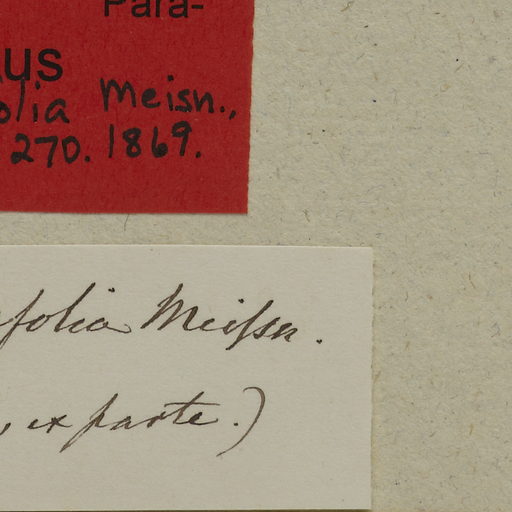 Para-
us
olia Meisn.,
270. 1869.
folia Meissn.
, ex parte.)